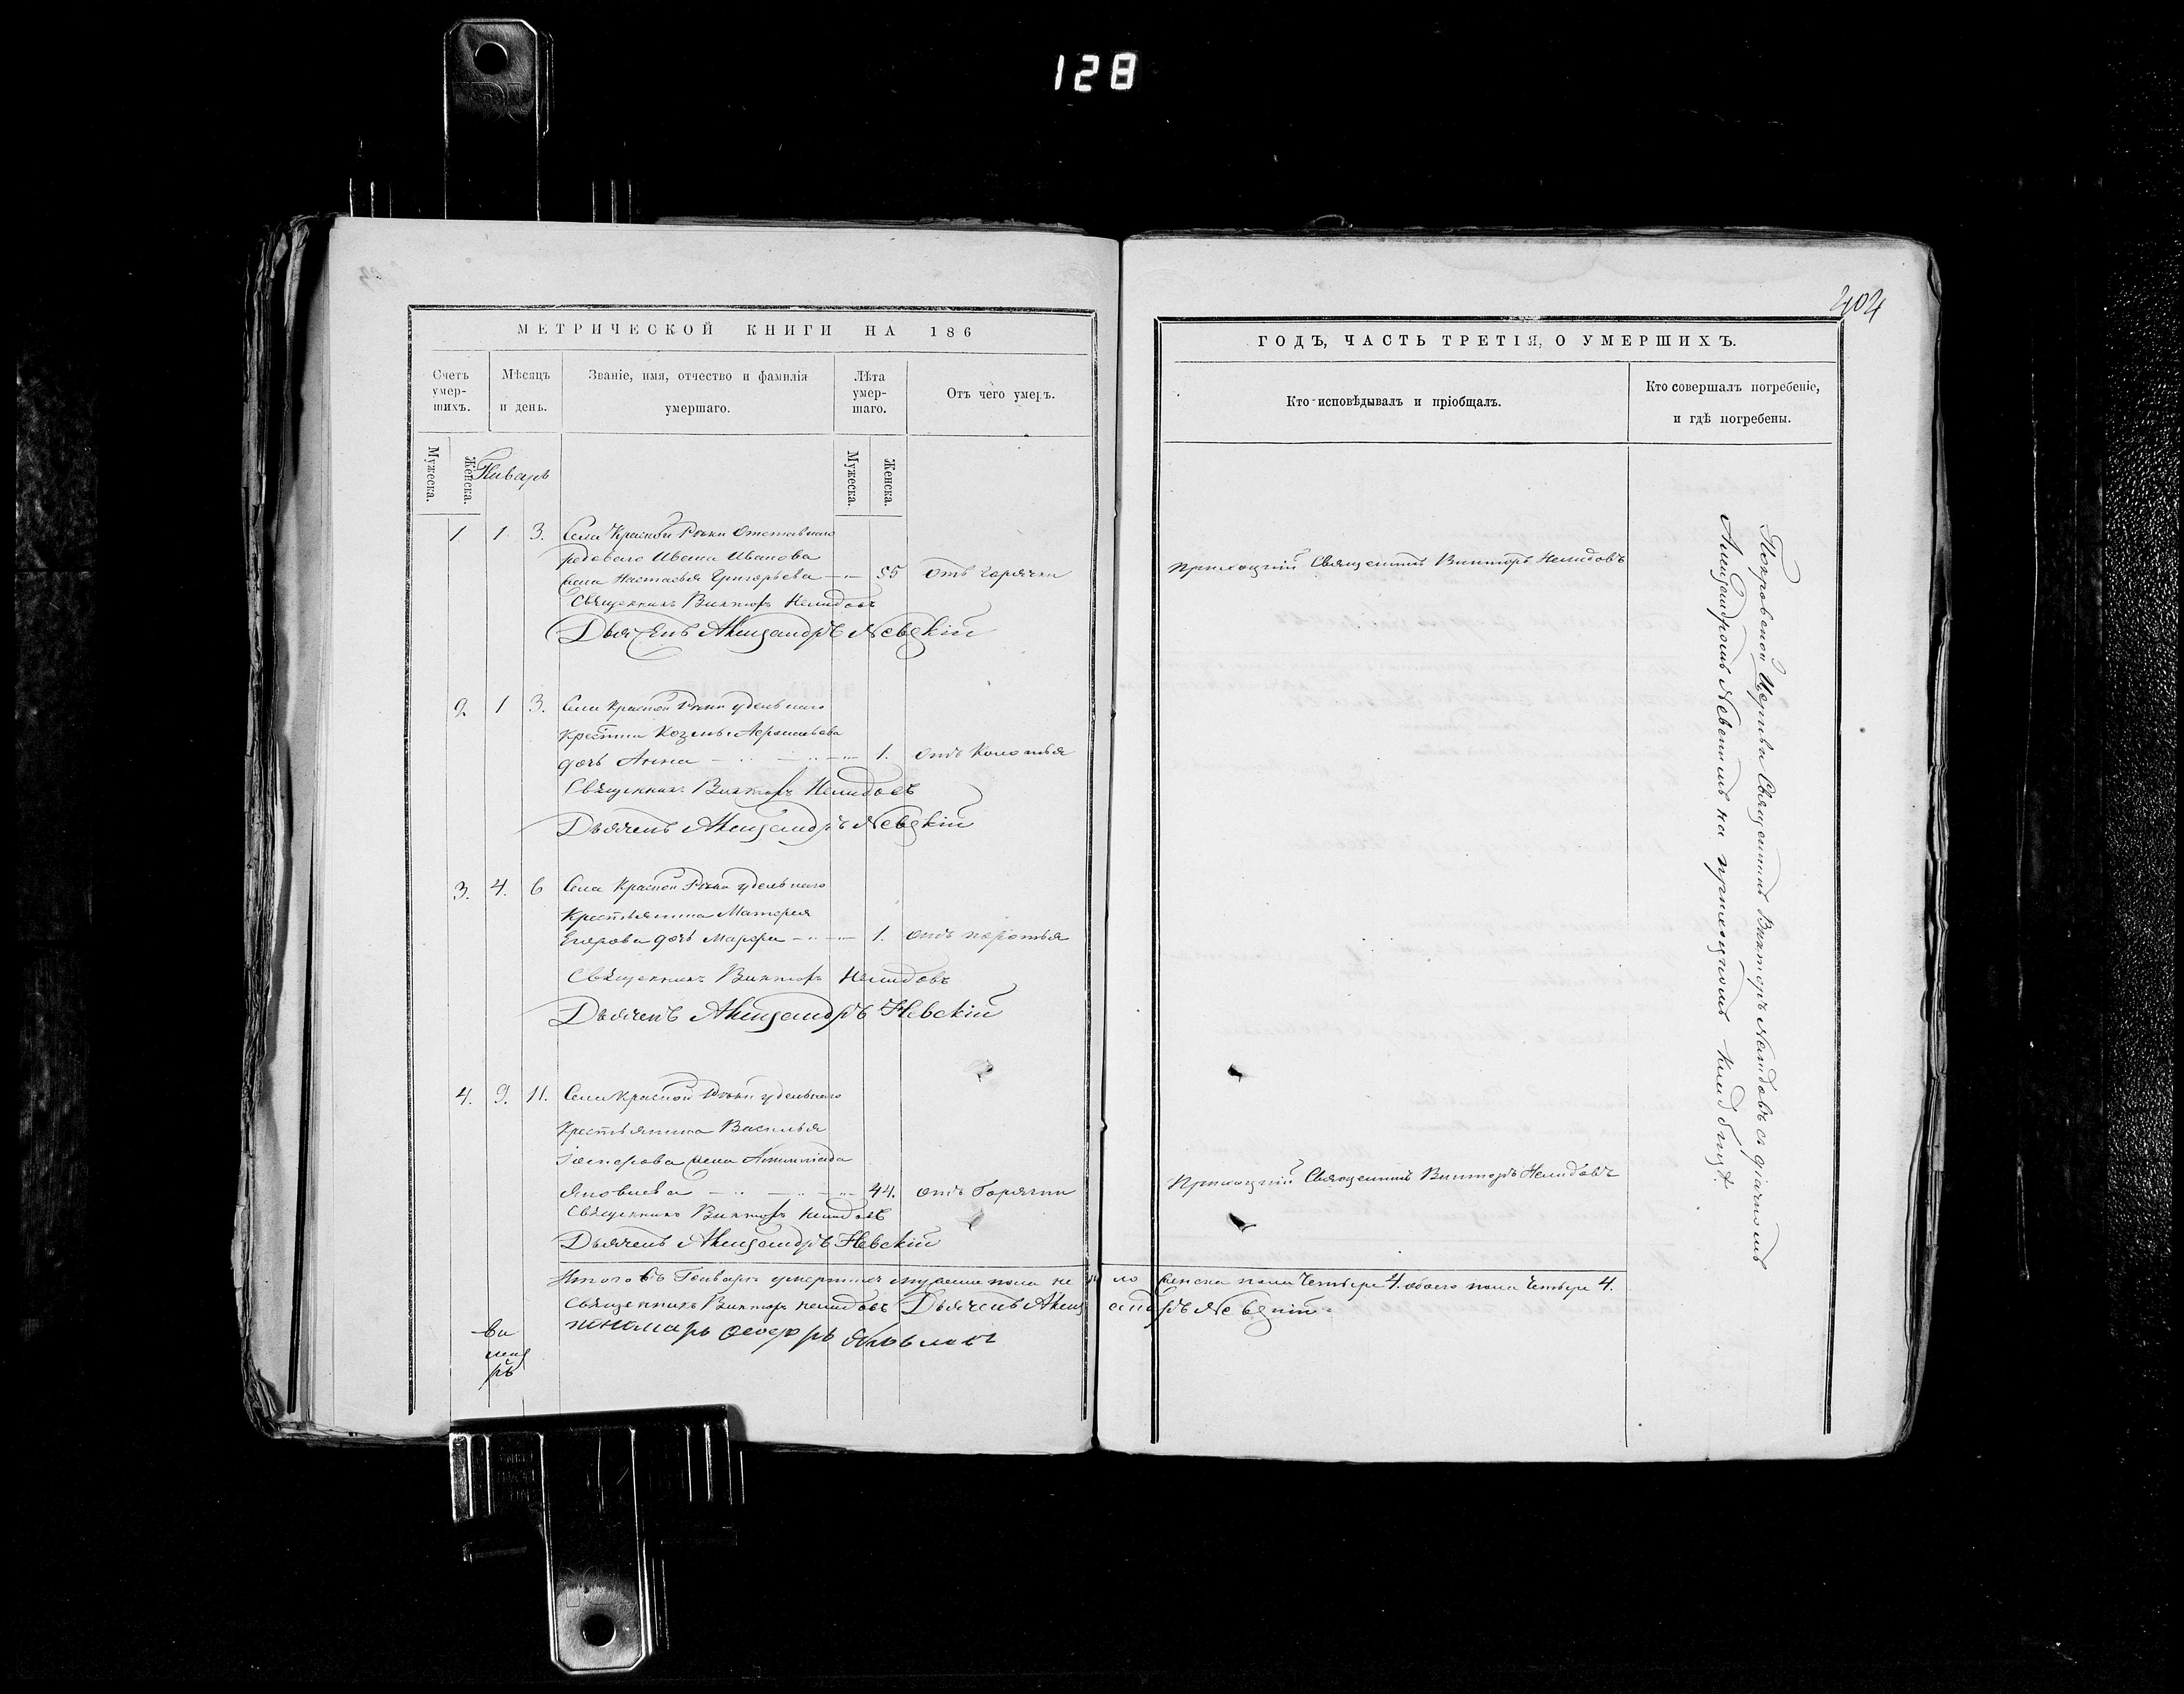 128
404
МЕТРИЧЕСКОЙ КНИГИ НА 186
Счетъ умер-шихъ.
Мѣсяцъ и день.
Званіе, имя, отчество и фамилія умершаго.
Лѣта умер-шаго.
Отъ чего умеръ.
Мужеска.
Женска.
Январь
Мужеска.
Женска.
1 1 3. Села Красной Рѣки Отставнаго
рядоваго Ивана Иванова
жена Настасья Григорьева 55 отъ горячки
Священникъ Викторъ Нелидовъ
Дьячекъ Александръ Невскій
2 1 3. Села Красной Рѣки удельнаго
Козьмы
дочь Анна 1. отъ
Священникъ Викторъ Нелидовъ
Дьячекъ Александръ Невскій
3. 4. 6 Села Красной Рѣки удельнаго
Крестьянина Матфея
Егорова дочь Марфа 1. отъ
Священникъ Викторъ Нелидовъ
Дьячекъ Александръ Невскій
4. 9. 11. Села Красной Рѣки удельнаго
Крестьянина Василья
жена
Яковлева 44. отъ Горячки
Священникъ Викторъ Нелидовъ
Дьячекъ Александръ Невскій
Итого въ Генваре умершихъ мужеска пола не было женска пола Четыре 4. обоего пола Четыре 4.
Священникъ Викторъ Нелидовъ Дьячекъ Александръ Невскій.
пономарь Ѳеодоръ
ГОДЪ, ЧАСТЬ ТРЕТІЯ, О УМЕРШИХЪ.
Кто исповѣдывалъ и пріобщалъ.
Кто совершалъ погребеніе, и гдѣ погребены.
Приходскій Священникъ Викторъ Нелидовъ
Приходскій Священникъ Викторъ Нелидовъ
Покровской Церкви Священникъ Викторъ Нелидовъ съ дьячкомъ
Александромъ Невскимъ на приходскомъ кладбищѣ